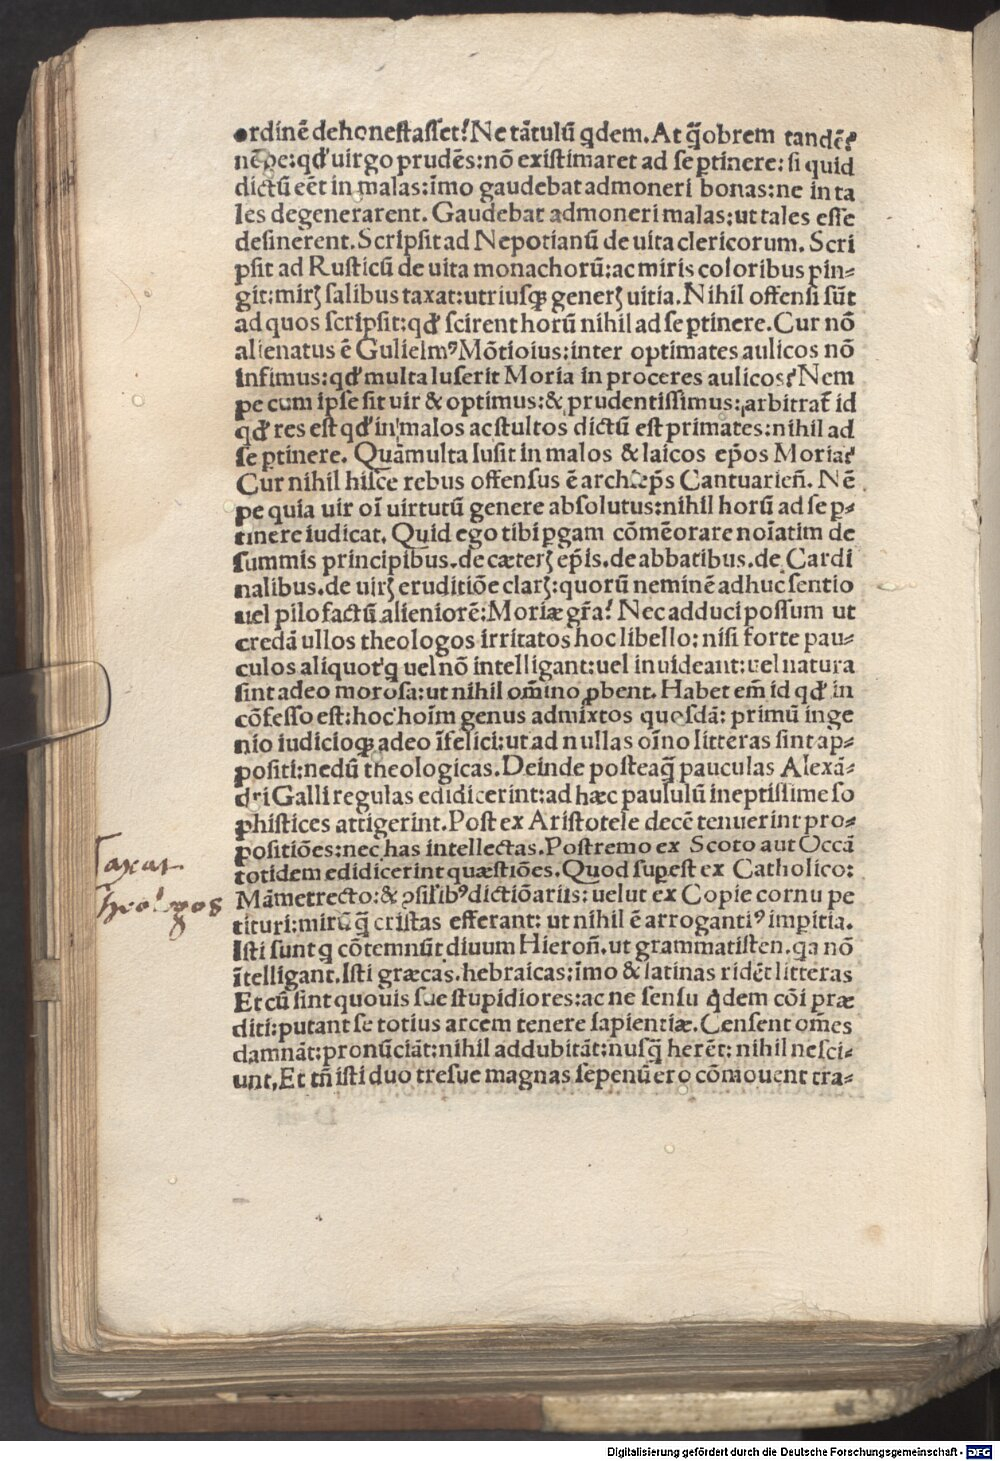 ordinē dehonestasset? Ne tātulū qdem. At q̄obrem tandē?
nēpe: qđ uirgo prudēs: nō existimaret ad se ptinere: si quid
dictū eēt in malas: īmo gaudebat admoneri bonas: ne in ta
les degenerarent. Gaudebat admoneri malas: ut tales esse
desinerent. Scripsit ad Nepotianū de uita clericorum. Scri
psit ad Rusticū de uita monachorū: ac miris coloribus pin-
git: mirꝭ salibus taxat: utriusqꝫ generꝭ uitia. Nihil offensi sūt
ad quos scripsit: qđ scirent horū nihil ad se ꝑtinere. Cur nō
alienatus ē Gulielmꝰ Mōtioius: inter optimates aulicos nō
infimus: qđ multa luserit Moria in proceres aulicos? Nem
pe cum ipse sit uir & optimus: & prudentissimus: arbitrat̄ id
qđ res est qđ in malos ac stultos dictū est primates: nihil ad
se ꝑtinere. Quāmulta lusit in malos & laicos ep̄os Moria?
Cur nihil hisce rebus offensus ē archiep̄s Cantuarieñ. Nē
pe quia uir oī uirtutū genere absolutus: nihil horū ad se ꝑ-
tinere iudicat. Quid ego tibi ꝑgam cōmēorare noīatim de
summis principibus. de cæterꝭ ep̄is. de abbatibus. de Cardi
nalibus. de uirꝭ eruditiōe clarꝭ: quorū neminē adhuc sentio
uel pilo factū alieniorē: Moriæ gr̄a? Nec adduci possum ut
credā ullos theologos irritatos hoc libello: nisi forte pau-
culos aliquot q uel nō intelligant: uel inuideant: uel natura
sint adeo morosa: ut nihil om̄ino ꝓbent. Habet em̄ id qđ in
cōfesso est: hoc hoīm genus admixtos quosdā: primū inge
nio iudicioqꝫ adeo īfelici: ut ad nullas oīno litteras sint ap-
positi: nedū theologicas. Deinde posteaq̄ pauculas Alexā-
dri Galli regulas edidicerint: ad hæc paululū ineptissime so
phistices attigerint. Post ex Aristotele decē tenuerint pro-
positiōes: nec has intellectas. Postremo ex Scoto aut Occā
totidem edidicerint quæstiōes. Quod suꝑest ex Catholico:
Māmetrecto: & ꝯsilibꝰ dictiōariis: uelut ex Copie cornu pe
tituri: mirū q̄ cristas efferant: ut nihil ē arrogantiꝰ imꝑitia.
Isti sunt q cōtemnūt diuum Hieroñ. ut grammatisten. qa nō
ītelligant. Isti græcas. hebraicas: īmo & latinas ridēt litteras
Et cū sint quouis sue stupidiores: ac ne sensu qdem cōi præ
diti: putant se totius arcem tenere sapientiæ. Censent om̄es
damnāt: pronūciāt: nihil addubitāt: nusq̄ herēt: nihil nesci-
unt. Et tn̄ isti duo tresue magnas sepenūero cōmouent tra-
Taxat
Theologos
Digitalisierung gefördert durch die Deutsche Forschungsgemeinschaft - DFG